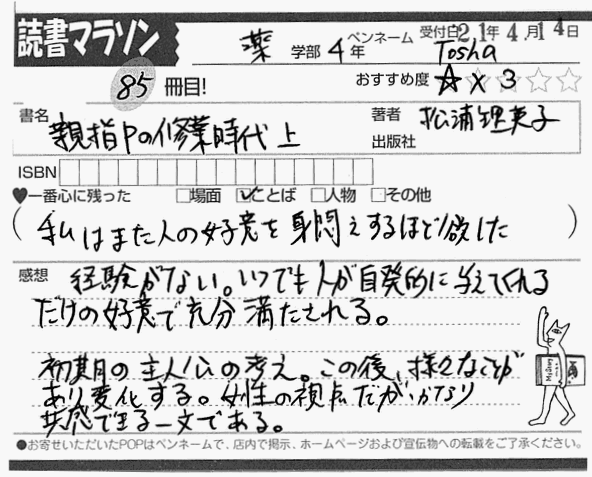 読書マラソン
薬 学部 4年
ペンネーム Tosha
受付日 21年 4月14日
85 冊目!
おすすめ度 ☆×3
書名 親指Pの修業時代 上
著者 松浦理英子
出版社
ISBN
♥一番心に残った □場面 ☑ことば □人物 □その他
(私はまた人の好意を身悶えするほど欲した)
感想 経験がない。いつでも人が自発的に与えてくれる
だけの好意で充分満たされる。
初期の主人公の考え。この後、様々なことが
あり変化する。女性の視点だが、かなり
共感できる一文である。
●お寄せいただいたPOPはペンネームで、店内で掲示、ホームページおよび宣伝物への転載をご了承ください。